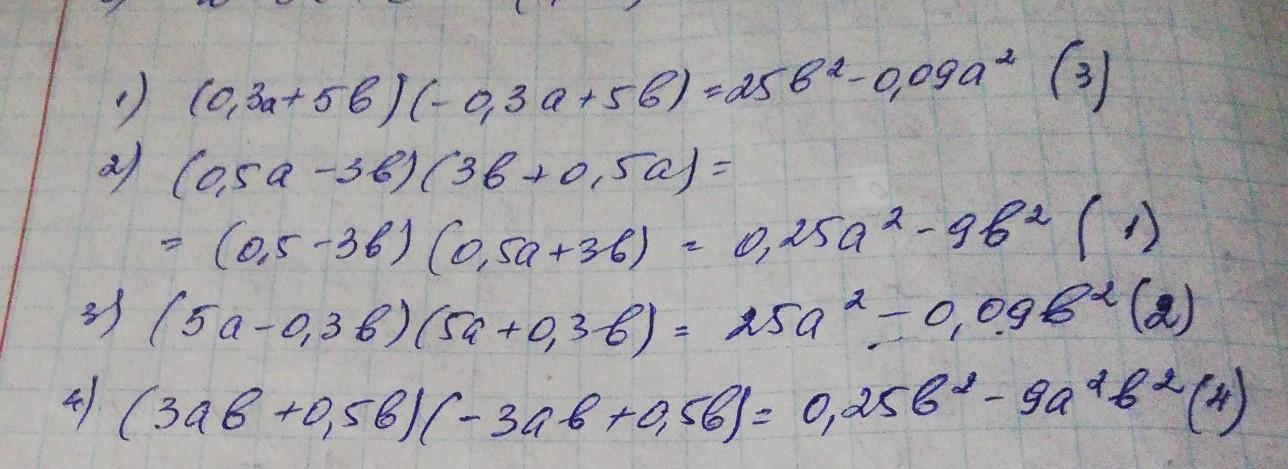 1) (0,3a+5b)(-0,3a+5b)=25b²-0,09a² (3)
2) (0,5a-3b)(3b+0,5a)=
= (0,5-3b)(0,5a+3b) = 0,25a²-9b² (1)
3) (5a-0,3b)(5a+0,3b) = 25a²-0,09b² (2)
4) (3ab+0,5b)(-3ab+0,5b)= 0,25b²-9a²b² (4)